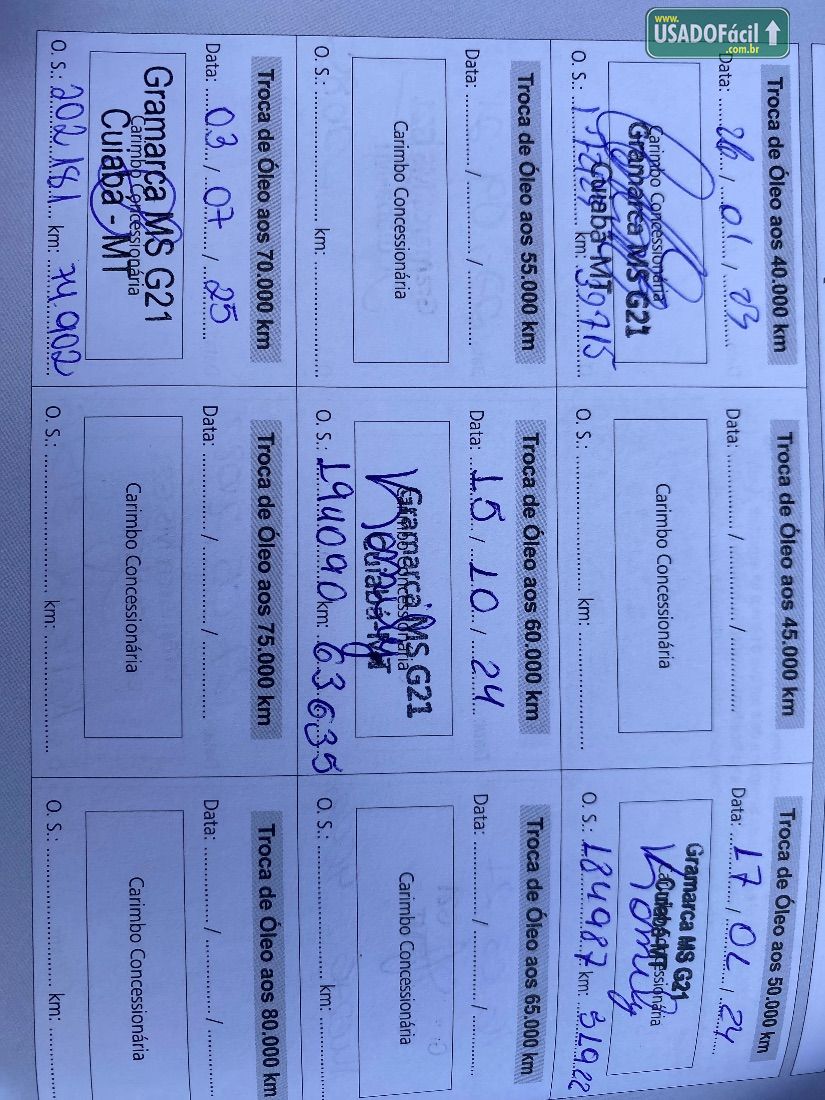 www.
USADOFácil
.com.br
Troca de Óleo aos 40.000 km
Data: 26 / 01 / 23
Carimbo Concessionária
Gramarca MS G21
Cuiabá-MT
O. S.: km: 39715
Troca de Óleo aos 45.000 km
Data: ........ / ........ / ........
Carimbo Concessionária
O. S.: ........ km: ........
Troca de Óleo aos 50.000 km
Data: 17 / 02 / 24
Gramarca MS G21
Cuiabá-MT
O. S.: 184987 km:
Troca de Óleo aos 55.000 km
Data: ........ / ........ / ........
Carimbo Concessionária
O. S.: ........ km: ........
Troca de Óleo aos 60.000 km
Data: 15 / 10 / 24
Gramarca MS G21
Cuiabá-MT
O. S.: 194090 km: 63635
Troca de Óleo aos 65.000 km
Data: ........ / ........ / ........
Carimbo Concessionária
O. S.: ........ km: ........
Troca de Óleo aos 70.000 km
Data: 03 / 07 / 25
Gramarca MS G21
Carimbo Concessionária
Cuiabá - MT
O. S.: 202181 km: 74.902
Troca de Óleo aos 75.000 km
Data: ........ / ........ / ........
Carimbo Concessionária
O. S.: ........ km: ........
Troca de Óleo aos 80.000 km
Data: ........ / ........ / ........
Carimbo Concessionária
O. S.: ........ km: ........